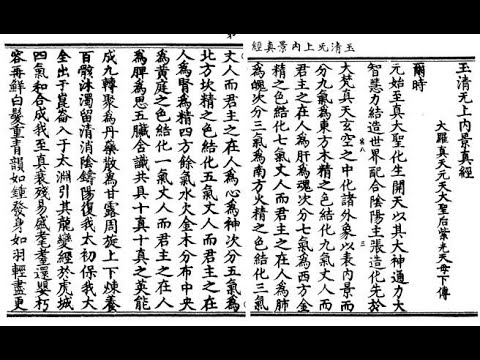 玉清无上內景真經
玉清无上內景真經
大羅真天元天大聖后紫光天母下傳
爾時
元始至真大聖化生開天以其大神通力大
智慧力結造世界配合陰陽主張造化先於
大梵真天玄空之中化諸外象以表內景而
分九氣為東方木精之色結化九氣丈人而
君主之在人為肝為魂次分七氣為西方金
精之色結化七氣丈人而君主之在人為肺
為魄次分三氣為南方火精之色結化三氣
丈人而君主之在人為心為神次分五氣為
北方坎精之色結化五氣丈人而君主之在
人為腎為精四方餘氣水火金木分布中央
為黃庭之色結化一氣丈人而君主之在人
為脾為思五臟含識共具十真十真之英能
成九轉聚為丹藥散為甘露周旋上下煉養
百骸沐濁留清消陰鑄陽復我太初保我大
全出于崑崙入于太淵引其龍變經於虎城
四氣和合成我至真衰殘易盛耄耋還嬰朽
容再鮮白髮重青韻如鍾發身如羽輕盡更